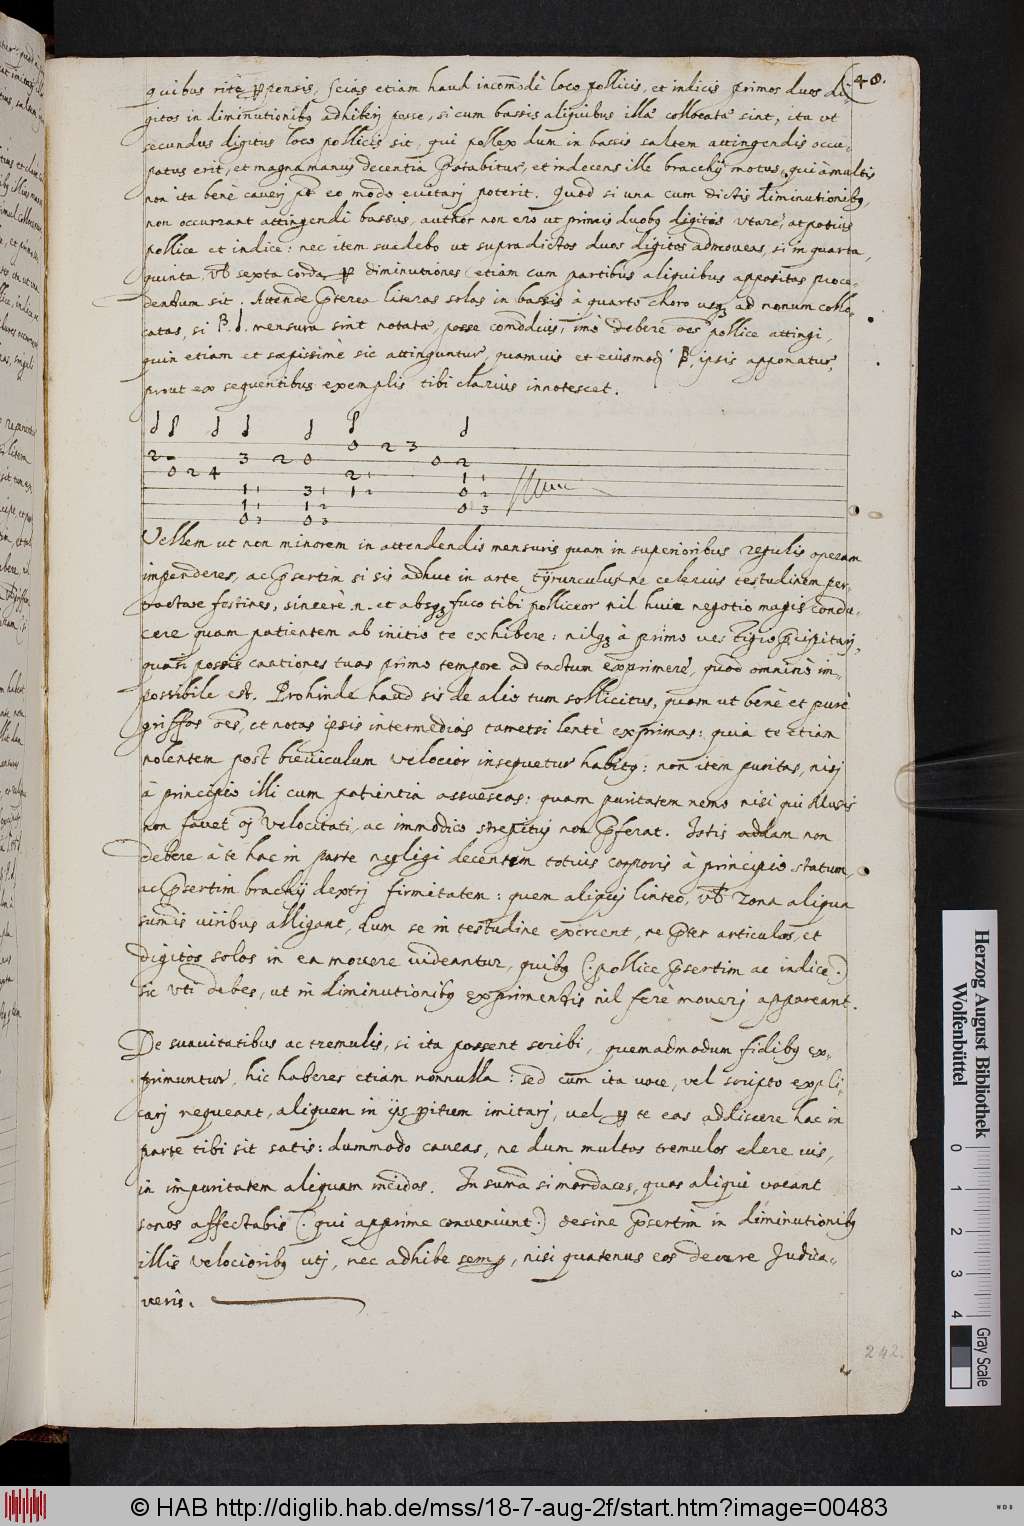 48.
quibus ritè ꝑpensis, scias etiam haud incom̄odè loco pollicis, et indicis primos duos di-
gitos in diminutionibꝫ adhiberj posse, si cum bassis aliquibus illa collocata sint, ita ut
secundus digitus loco pollicis sit, qui pollex dum in bassis saltem attingendis occu-
patus erit, et magna manus decentia seruabitur, et indecens ille brachij motus, qui à multis
non ita benè cauerj pt̄ eo modo euitarj poterit. Quod si una cum dictis diminutionibꝫ,
non occurrant attingendi bassus, author non ero ut primis duobꝫ digitis vtare, at potius
pollice et indice: nec item suadebo ut supradictos duos digitos admoueas, si in quarta,
quinta, vł sexta corda ꝑ diminutiones etiam cum partibus aliquibus appositas proce-
dendum sit. Attende p̄terea literas solas in bassis à quarto choro usqꝫ ad nonum collo-
catas, si mensura sint notata, posse comodius, imò debere oēs pollice attingi,
quin etiam et sæpissimè sic attinguntur, quamuis et eiusmodj ipsis apponatur,
prout ex sequentibus exemplis tibi clarius innotescet.
0 2 3
2 3 2 0 0 2
0 2 4 2 1
1 3 1 0 2
1 1 2 0 3
0 3 0 3
Vellem ut non minorem in attendendis mensuris quam in superioribus regulis operam
impenderes, ac p̄sertim si sis adhuc in arte tÿrunculus ne celerius testudinem per-
tractare festines, sincerè .n. et absqꝫ fuco tibi polliceor nil huic negotio magis condu-
cere quam patientem ab initio te exhibere: nilqꝫ à primo uestigio p̄cipitarj,
quasi possis cantiones tuas primo tempore ad tactum exprimere, quod omninò im-
possibile est. Prohinde haud sis de alio tum sollicitus, quam ut benè et purè
griffos oēs, et notas ipsis intermedias tametsi lentè exprimas: quia te etiam
nolentem post breuiculum velocior insequetur habitꝫ: non item puritas, nisj
à principio illi cum patientia assuescas: quam puritatem nemo nisi qui Musis
non fauet oj velocitati, ac immodico strepituj non p̄ferat. Istis addam non
debere à te hac in parte negligi decentem totius corporis à principio statum,
ac p̄sertim brachij dextrj firmitatem: quem aliquj linteo, vł zona aliqua
sum̄is viribus alligant, dum se in testudine exercent, ne p̄ter articulos, et
digitos solos in ea mouere uideantur, quibꝫ (: pollice p̄sertim ac indice :)
sic vti debes, ut in diminutionibꝫ exprimendis nil ferè mouerj appareant.
De suauitatibus ac tremulis, si ita possent scribi, quemadmodum fidibꝫ ex-
primuntur, hic haberes etiam nonnulla: sed cum ita uoce, vel scripto expli-
carj nequeant, aliquem in ijs ꝑitum imitarj, uel ꝑ te eas addiscere hac in
parte tibi sit satis: dummodo caueas, ne dum multos tremulos edere uis,
in impuritatem aliquam incidas. In suma si mordaces, quos aliqui vocant
sonos affectabis (: qui apprime conueniunt :) desine p̄sertim in diminutionibꝫ
illis velocioribꝫ utj, nec adhibe semꝑ, nisi quatenus eos decere Judica-
ueris.
242.
Herzog August Bibliothek
Wolfenbüttel
0 1 2 3 4
Gray Scale
© HAB http://diglib.hab.de/mss/18-7-aug-2f/start.htm?image=00483